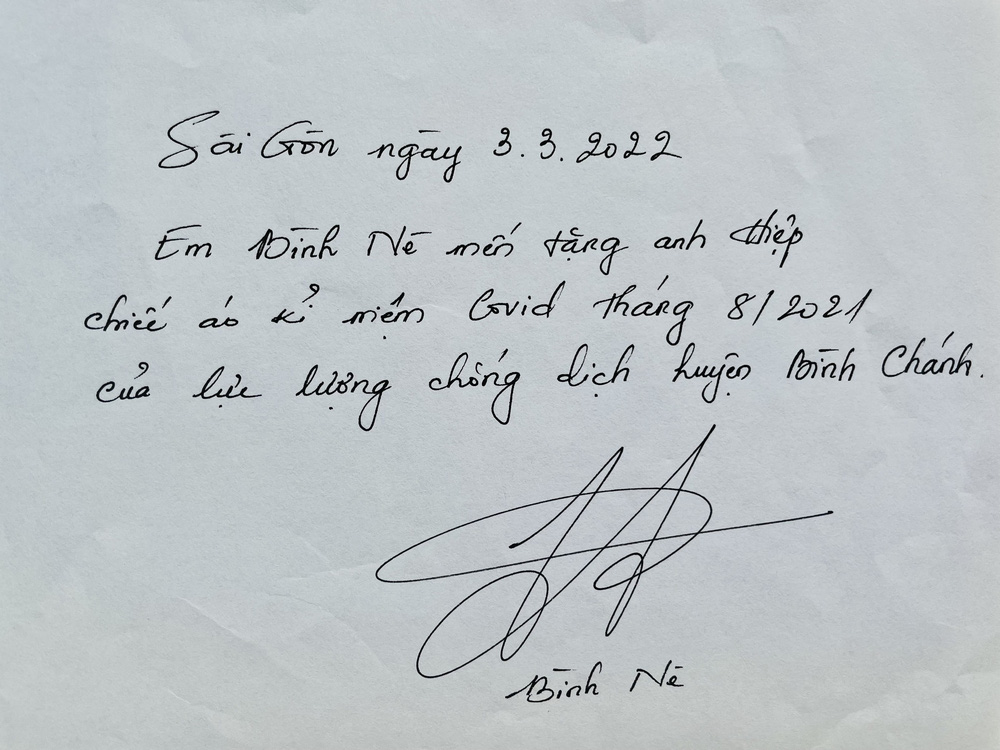 Sài Gòn ngày 3.3.2022
Em Bình Nè mến tặng anh Hiệp
chiếc áo kỉ niệm Covid tháng 8/2021
của lực lượng chống dịch huyện Bình Chánh.
Bình Nè